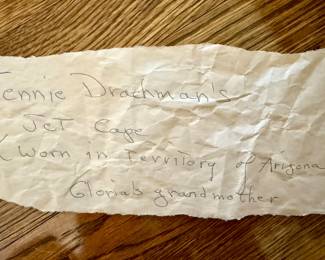 Jennie Drachman's
Jet Cape
(Worn in Territory of Arizona
Gloria's grandmother